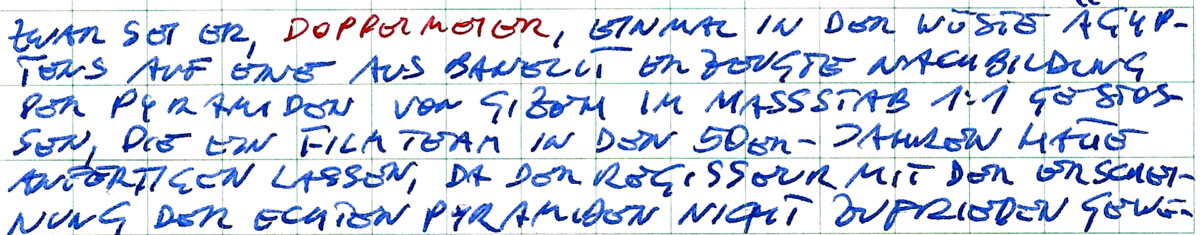 ZWAR SEI ER, DOPPERMEIER, EINMAL IN DER WÜSTE ÄGYP-
TENS AUF EINE AUS BAKELIT ERZEUGTE NACHBILDUNG
DER PYRAMIDEN VON GIZEH IM MASSSTAB 1:1 GESTOS-
SEN, DIE EIN FILMTEAM IN DEN 50ER-JAHREN HATTE
ANFERTIGEN LASSEN, DA DER REGISSEUR MIT DER ERSCHEI-
NUNG DER ECHTEN PYRAMIDEN NICHT ZUFRIEDEN GEWE-